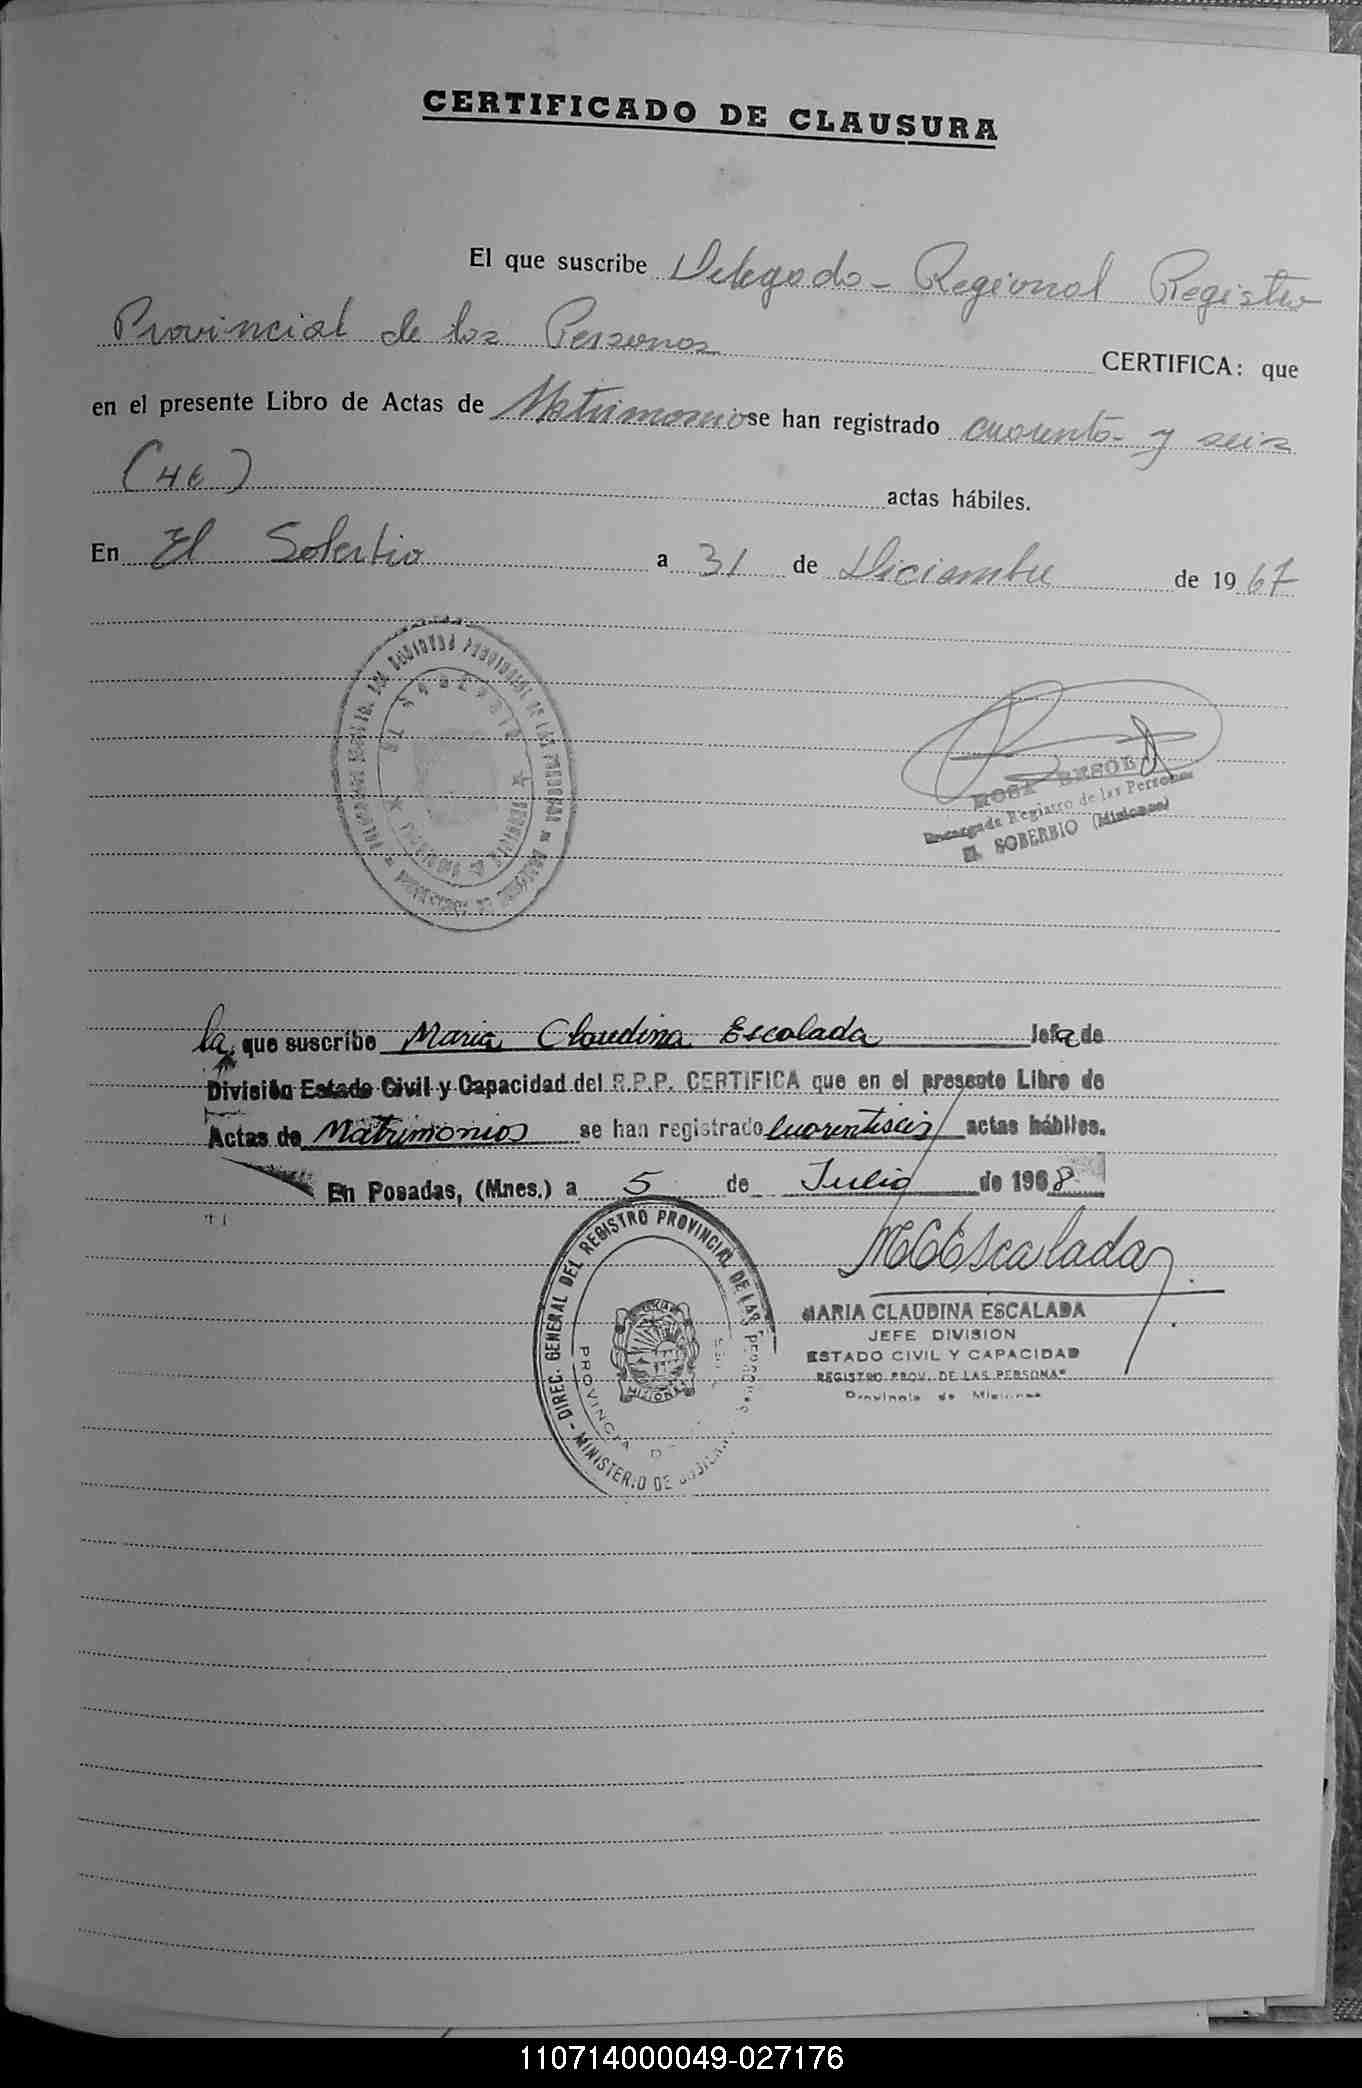 CERTIFICADO DE CLAUSURA
El que suscribe Delegado - Regional Registro
Provincial de los Personas CERTIFICA: que
en el presente Libro de Actas de Matrimonio se han registrado cuarenta y seis
(46) actas hábiles.
En El Soberbio a 31 de Diciembre de 1967
Encargada Registro de las Personas
EL SOBERBIO (Misiones)
la que suscribe Maria Claudina Escalada Jefa de
División Estado Civil y Capacidad del R.P.P. CERTIFICA que en el presente Libro de
Actas de Matrimonios se han registrado Cuarentiseis actas hábiles.
En Posadas, (Mnes.) a 5 de Julio de 1968
DIREC. GENERAL DEL REGISTRO PROVINCIAL DE LAS PERSONAS - MINISTERIO DE
PROVINCIA
MISIONES
MCEscalada
MARIA CLAUDINA ESCALADA
JEFE DIVISION
ESTADO CIVIL Y CAPACIDAD
REGISTRO PROV. DE LAS PERSONAS
Provincia de Misiones
110714000049-027176